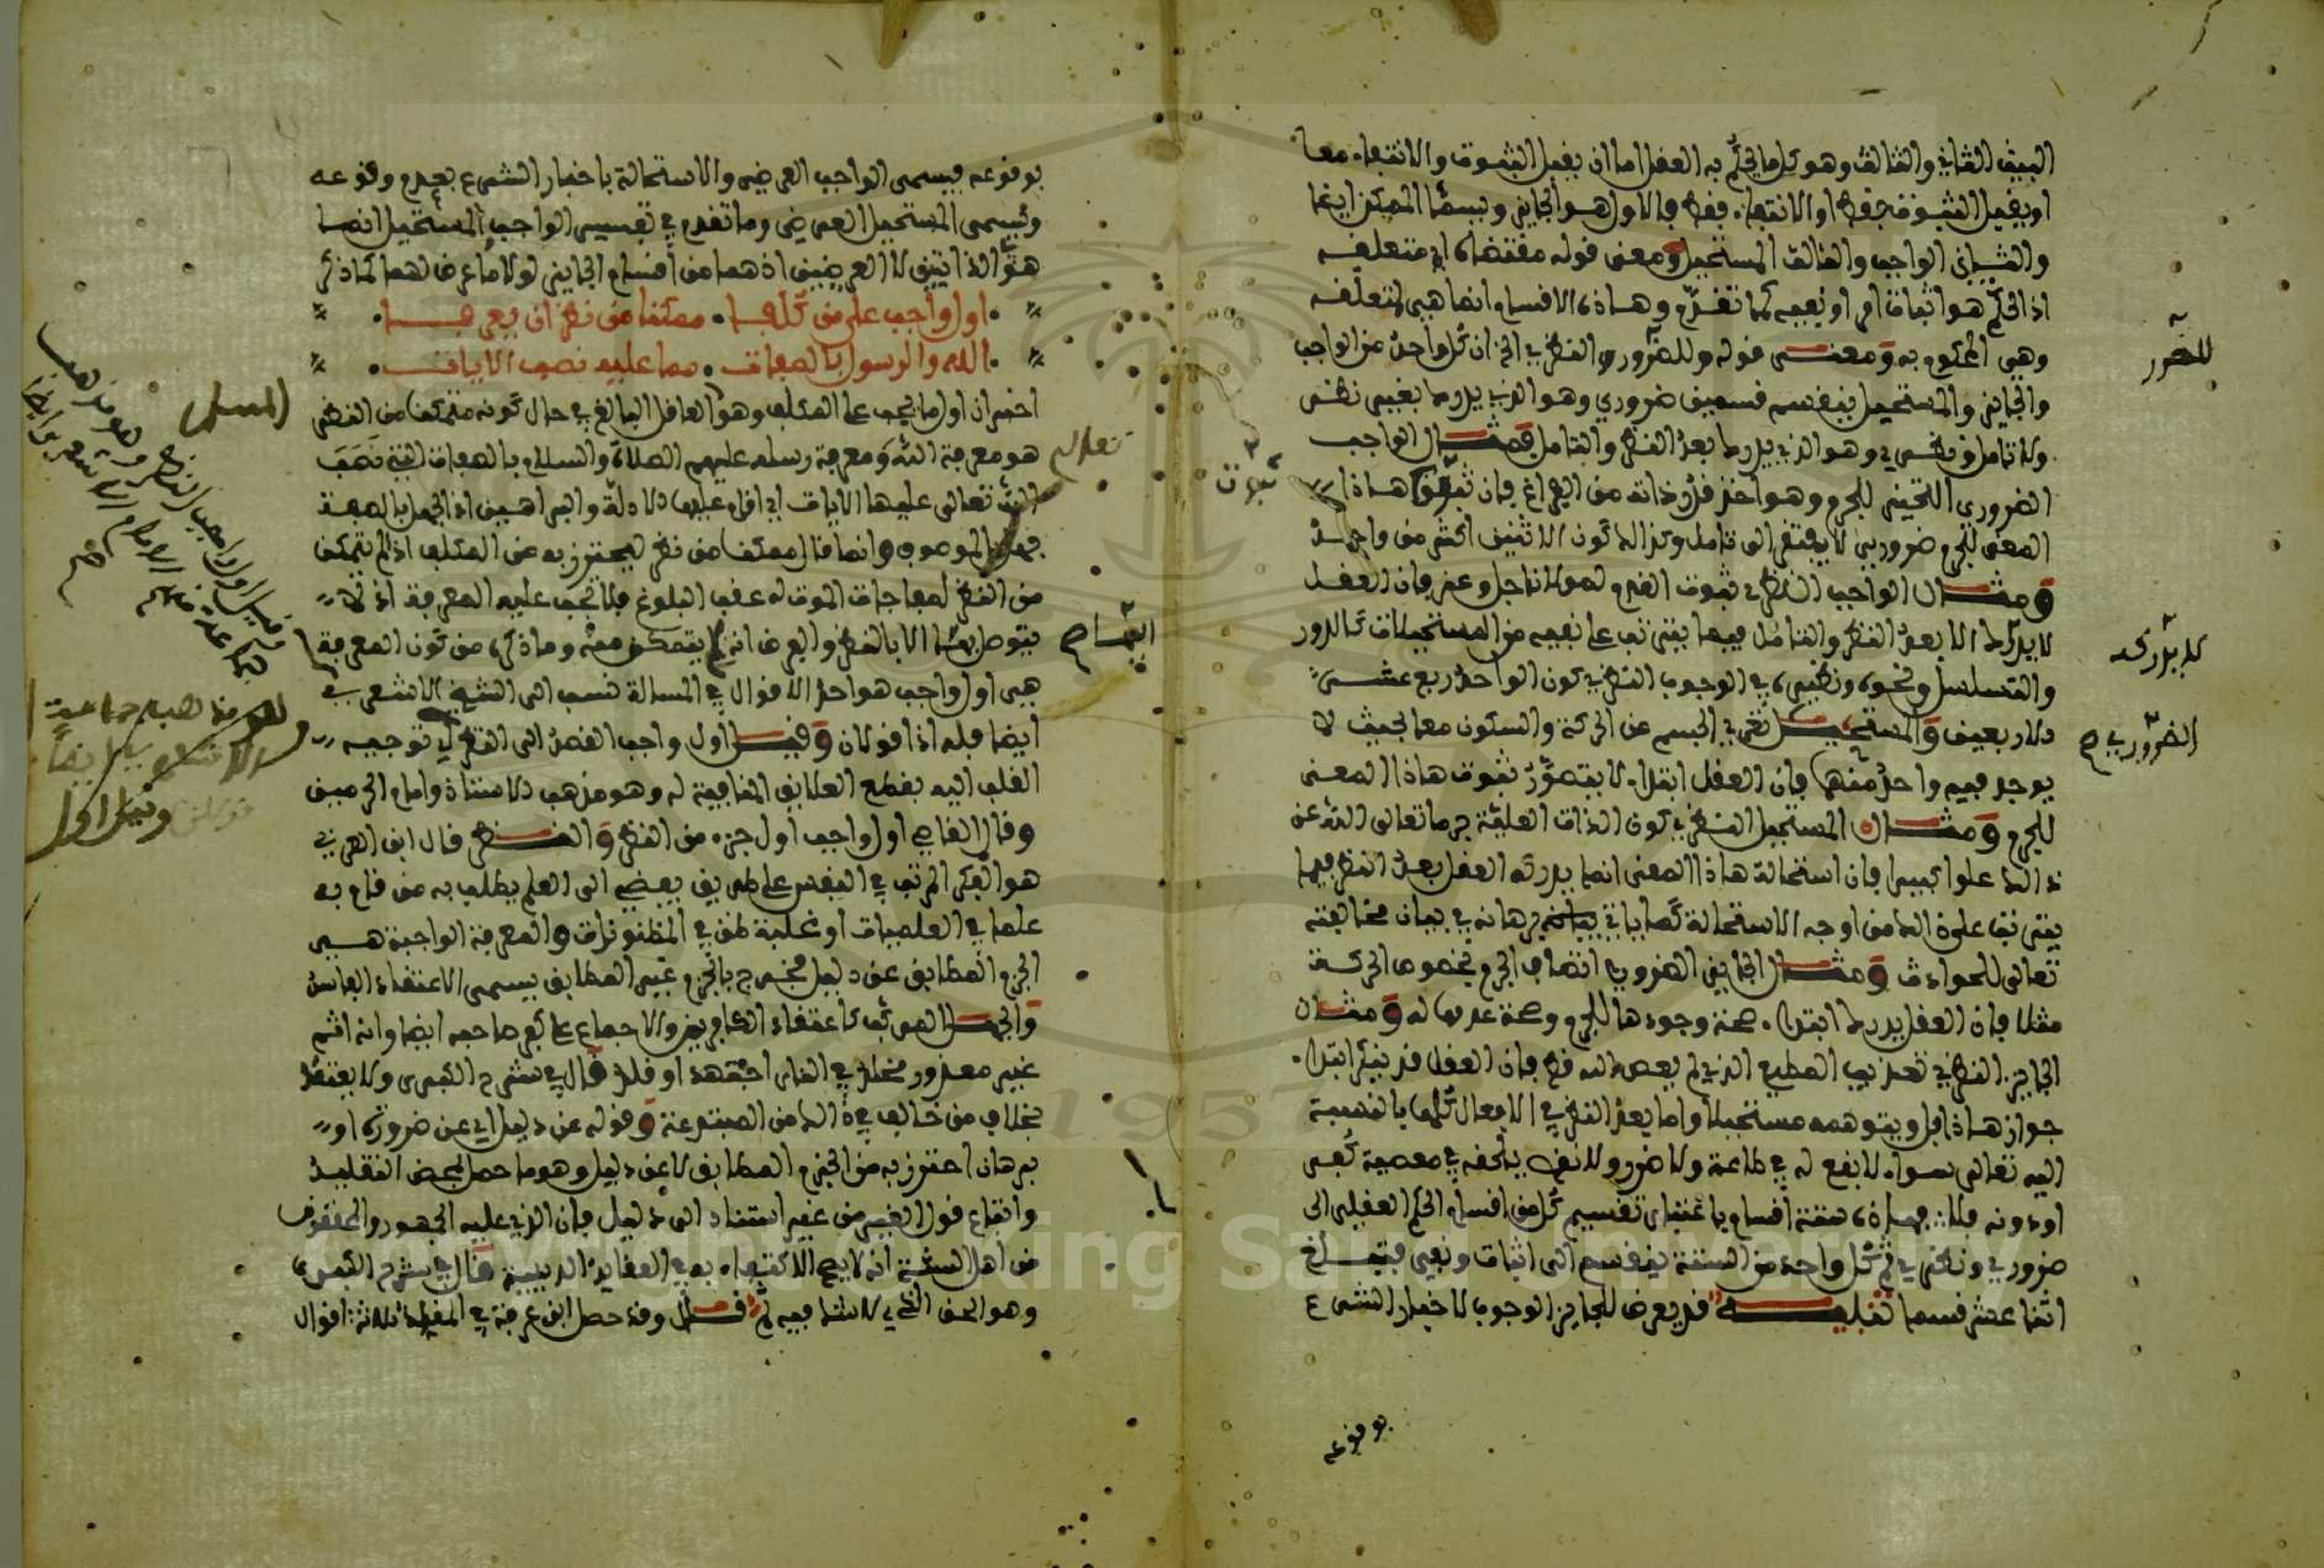 البيت الثاني والثالث وهو كل ما يحكم به العقل اما ان يقبل الثبوت والانتفاء معا
او يقبل الثبوت فقط او الانتفاء فقط فالاول هو الجايز ويسمى الممكن ايضا
والثاني الواجب والثالث المستحيل ومعنى قوله مقتضاه اي متعلقه
اذ الحكم هو اثبات امر او نفيه كما تقدم وهاذه الاقسام انما هي لمتعلقه
وهي المحكوم به ومعنى قوله وللضروري والنظري الخ ان كل واحد من الواجب
والجايز والمستحيل ينقسم قسمين ضروري وهو الذي يدرك بغير نظر
ولا تامل ونظري وهو الذي يدرك بعد النظر والتامل فمثال الواجب
الضروري التحيز للجرم وهو اخذ قدر ذاته من الفراغ فان ثبوت هاذا
المعنى للجرم ضروري لا يفتقر الى تامل وكذلك كون الاثنين اكثر من واحد
ومثال الواجب النظري ثبوت القدم لمولانا جل وعز فان العقل
لا يدركه الا بعد النظر والتامل فيما يترتب على نفيه من المستحيلات كالدور
والتسلسل ونحوه ونظيره في الوجوب النظري كون الواحد ربع عشر
الاربعين والمستحيل تعري الجسم عن الحركة والسكون معا بحيث لا
يوجد فيه واحد منهما فان العقل ابتداء لا يتصور ثبوت هاذا المعنى
للجرم ومثال المستحيل النظري كون الذات العلية جرما تعالى الله عن
ذالك علوا كبيرا فان استحالة هاذا المعنى انما يدركه العقل بعد النظر فيما
يترتب على ذالك من اوجه الاستحالة كما ياتي برهانه في بيان مخالفته
تعالى للحوادث ومثال الجايز الضروري اتصاف الجرم بخصوص الحركة
مثلا فان العقل يدرك ابتداء صحة وجودها للجرم وصحة عدمها له ومثال
الجايز النظري تعذيب المطيع الذي لم يعص الله قط فان العقل قد ينكر ابتداء
جواز هاذا بل ويتوهمه مستحيلا واما بعد النظر في الافعال كلها بالنسبة
اليه تعالى سواء لا نفع له في طاعة ولا ضرر ولا نقص يلحقه في معصية كفر
او دونه فلا فهاذه ستة اقسام باعتبار تقسيم كل من اقسام الحكم العقلي الى
ضروري ونظري ثم كل واحد من الستة ينقسم الى اثبات ونفي فتبلغ
اثنا عشر قسما تنبيه قد يعرض للجايز الوجوب لاخبار الشرع
بوقوعه
للضرور
ثبوت
لا يدركه
الضروري صح
بوقوعه فيسمى الواجب العرضي والاستحالة باخبار الشرع بعدم وقوعه
ويسمى المستحيل العرضي وما تقدم في تقسيم الواجب والمستحيل انما
هو الذاتيين لا العرضيين اذ هما من اقسام الجايز لولا ما عرض لهما كما ذكر
اول واجب على من كلفا ممكنا من نظر ان يعرفا
الله والرسول بالصفات مما عليه نصب الايات
اخبر ان اول ما يجب على المكلف وهو العاقل البالغ في حال كونه متمكنا من النظر
هو معرفة الله ومعرفة رسله عليهم الصلاة والسلام بالصفات التي نصب
الله تعالى عليها الايات اي اقام عليها الادلة والبراهين اذ الجهل بالصفة
جهل بالموصوف وانما قال ممكنا من نظر ليحترز به عن المكلف اذا لم يتمكن
من النظر لمفاجات الموت له عقب البلوغ فلا تجب عليه المعرفة اذ لا
يتوصل لها الا بالنظر والفرض انه لم يتمكن منه وما ذكره من كون المعرفة
هي اول واجب هو احد الاقوال في المسالة نسب الى الشيخ الاشعري
ايضا فله اذا قولان وقيل اول واجب القصد الى النظر اي توجيه
القلب اليه بقطع العلايق المنافية له وهو مذهب الاستاذ وامام الحرمين
وقال القاضي اول واجب اول جزء من النظر والنظر قال ابن العربي
هو الفكر المرتب في النفس على طريق يفضي الى العلم يطلب به من قام به
علما في العلميات او غلبة ظن في المظنونات والمعرفة الواجبة هي
الجزم المطابق عن دليل فخرج بالجزم غير المطابق يسمى الاعتقاد الفاسد
والجهل المركب كاعتقاد الكافرين والاجماع على كفر صاحبه ايضا وانه اثم
غير معذور مخلد في النار اجتهد او قلد قال في شرح الكبرى ولا يعتد
بخلاف من خالف في ذالك من المبتدعة وقوله عن دليل اي عن ضرورة او
برهان احترز به من الجزم المطابق لا عن دليل وهو ما حصل لمحض التقليد
واتباع قول الغير من غير استناد الى دليل فان الذي عليه الجمهور والمحققون
من اهل السنة انه لا يصح الاكتفاء به في العقايد الدينية قال في شرح الكبرى
وهو الحق الذي لا شك فيه ثم قال وقد حصل ابن عرفة في المقلد ثلاثة اقوال
تعالى